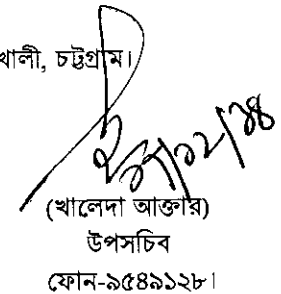 খালী, চট্টগ্রাম।
(খালেদা আক্তার)
উপসচিব
ফোন-৯৫৪৯১২৮।